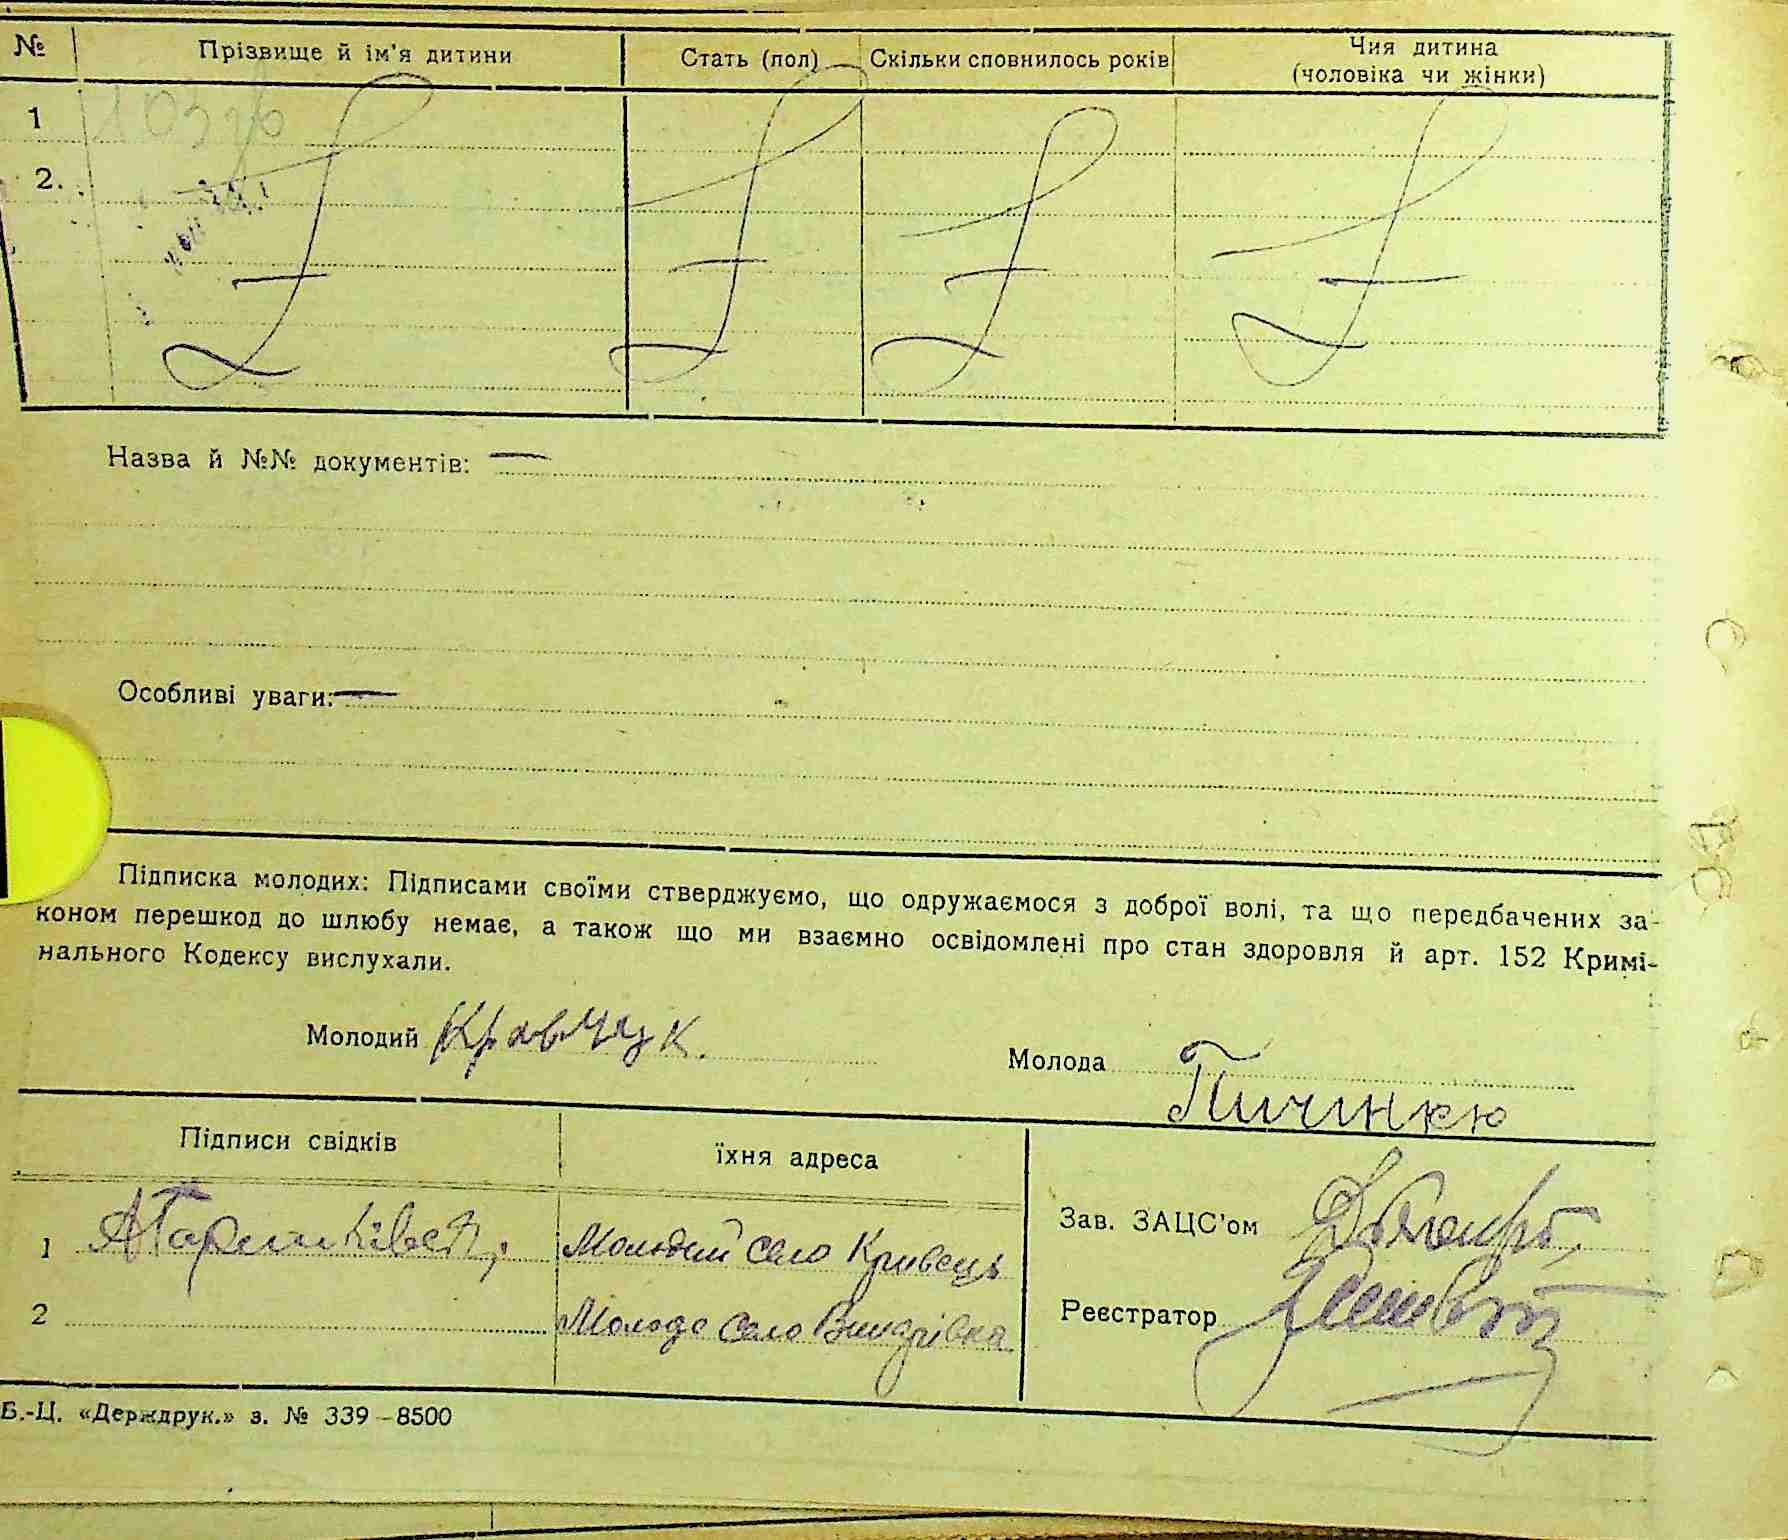 № Прізвище й ім'я дитини Стать (пол) Скільки сповнилось років Чия дитина
(чоловіка чи жінки)
1
2.
Назва й №№ документів: —
Особливі уваги: —
Підписка молодих: Підписами своїми стверджуємо, що одружаємося з доброї волі, та що передбачених за-
коном перешкод до шлюбу немає, а також що ми взаємно освідомлені про стан здоровля й арт. 152 Кримі-
нального Кодексу вислухали.
Молодий Кравчук. Молода Пичинкю
Підписи свідків їхня адреса
Зав. ЗАЦС'ом
1 Молодий село Кривець
Реєстратор
2 Молода село
Б.-Ц. «Держдрук.» з. № 339–8500